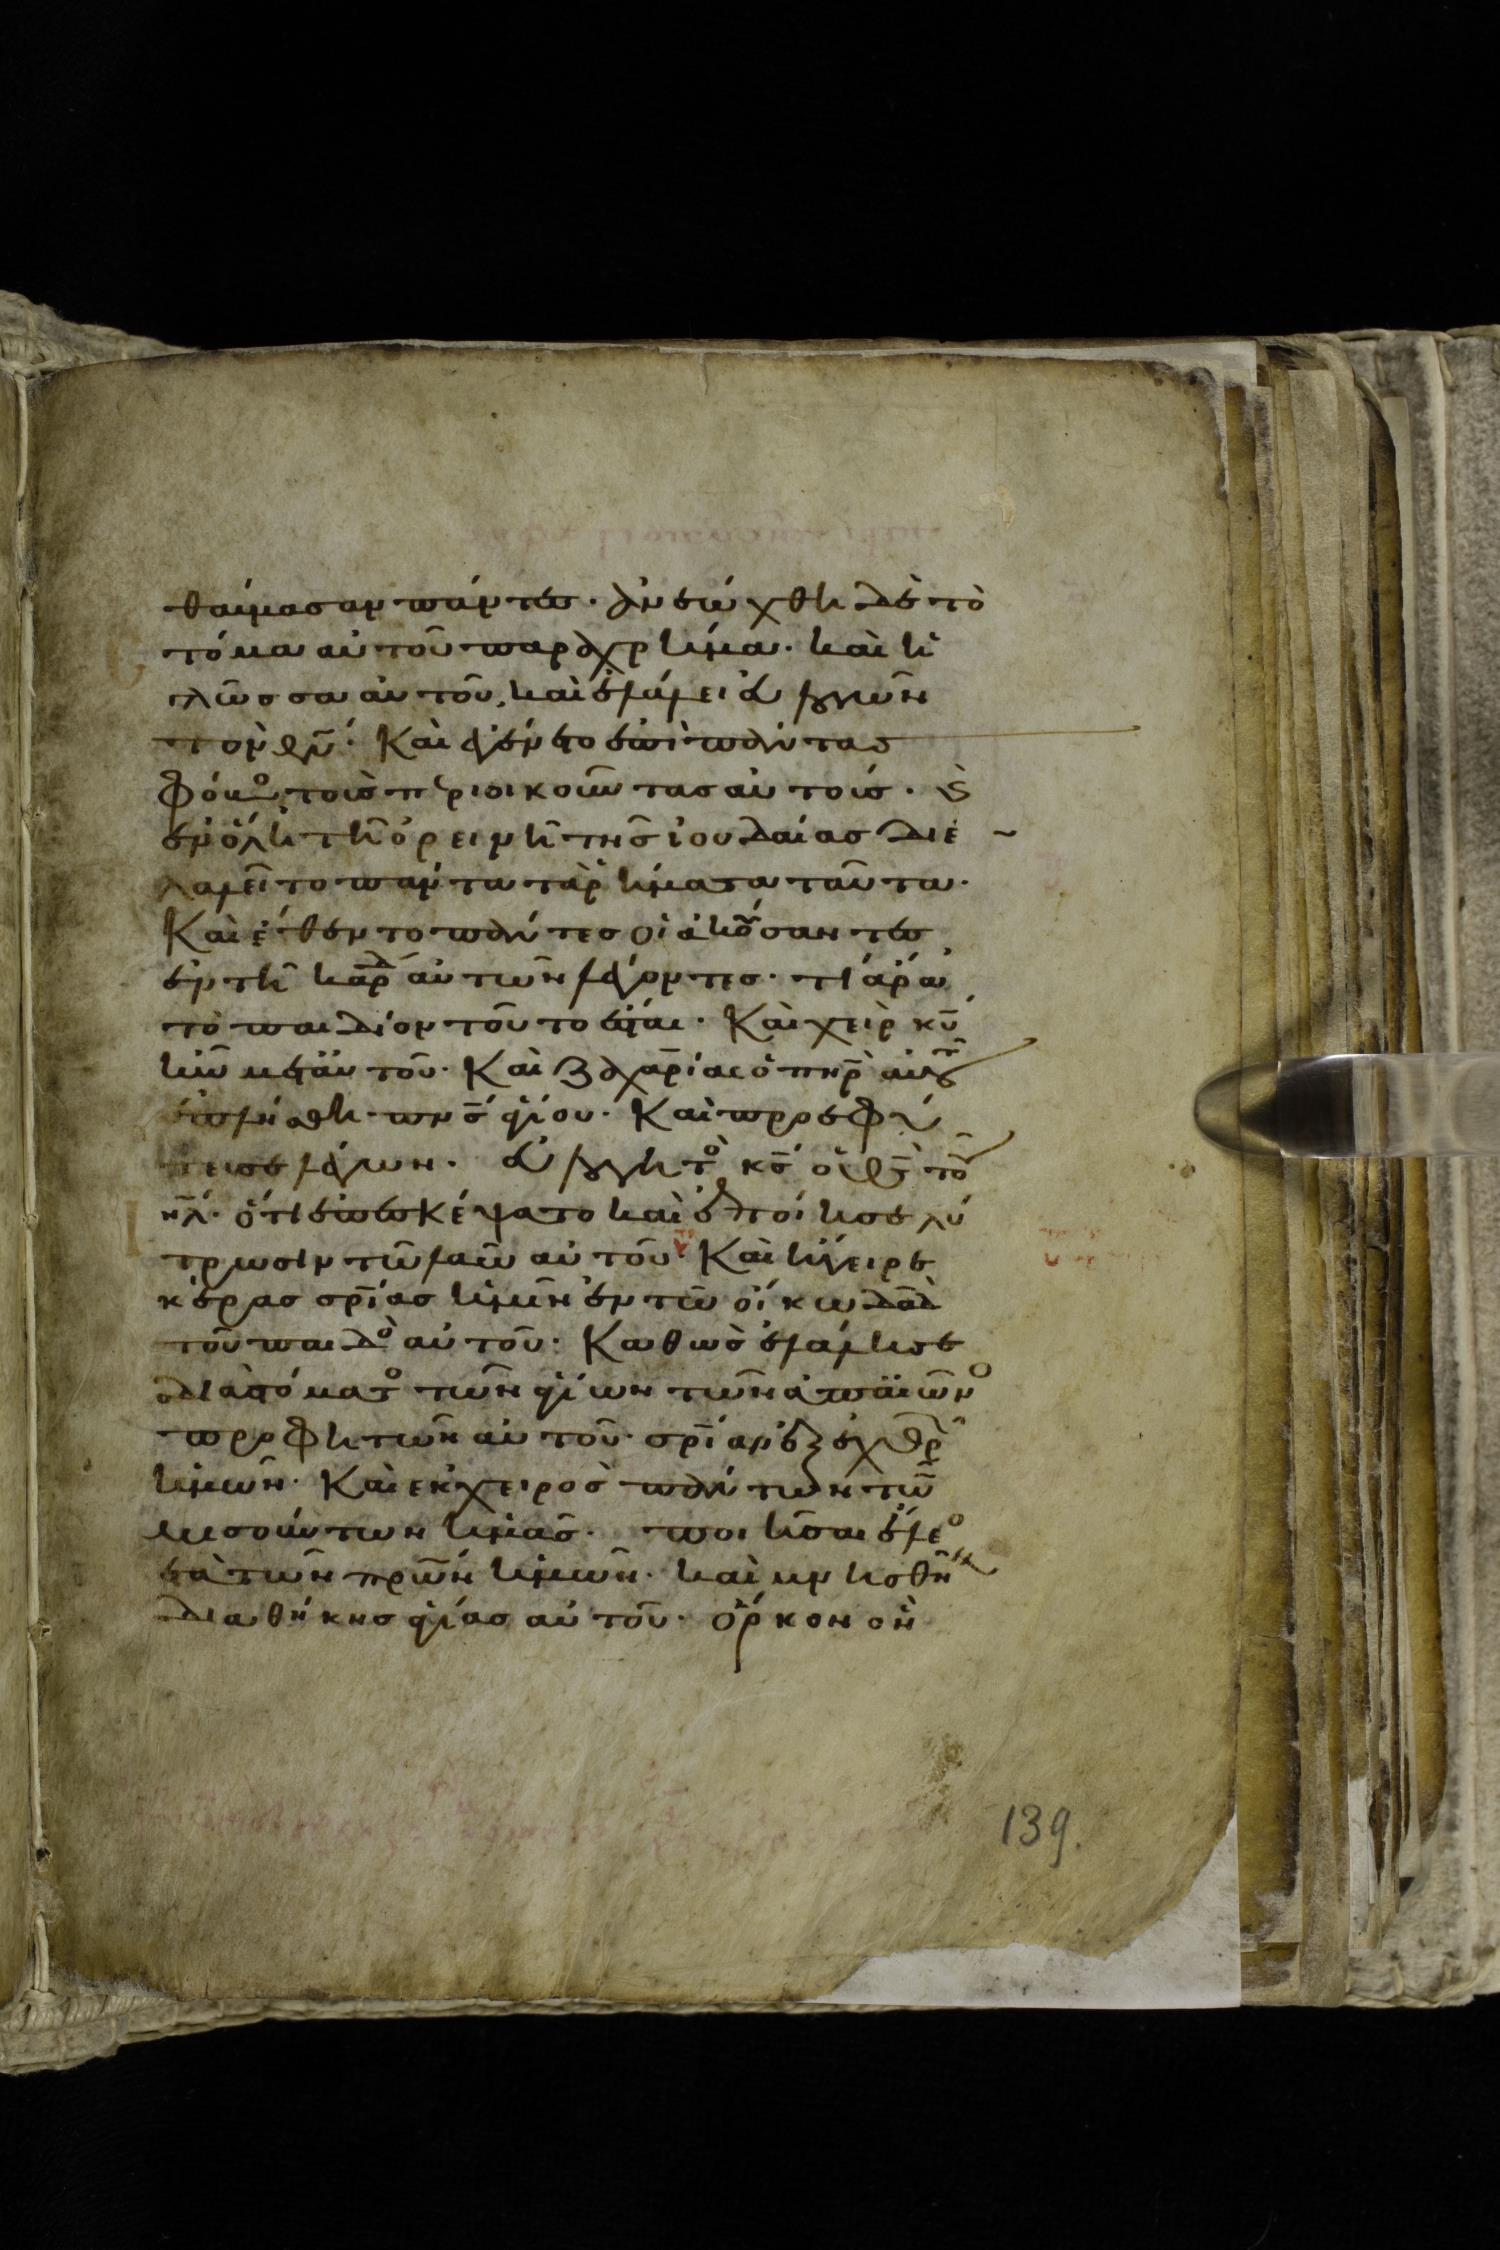 θαύμασαν πάντες· ἀνεώχθη δὲ τὸ
στόμα αὐτοῦ παραχρῆμα· καὶ ἡ
γλῶσσα αὐτοῦ, καὶ ἐλάλει εὐλογῶν
τὸν θν̄· Καὶ ἐγένετο ἐπὶ πάντας
φόβο τοὺς περιοικοῦντας αὐτούς· καὶ
ἐν ὅλη τῆ ὀρεινῆ τῆς ἰουδαίας διε
λαλεῖτο πάντα τὰ ῥήματα ταῦτα·
Καὶ ἔθεντο πάντες οἱ ἀκούσαντες
ἐν τῆ καρδ αὐτῶν λέγοντες· τί ἄρα
τὸ παιδίον τοῦτο ἔσται· Καὶ χεὶρ κῡ
ἦν μετ' αὐτοῦ· Καὶ Ζαχαρίας ὁ πηρ̄ αὐτοῦ
ἐπλήσθη πνς̄ ἁγίου· Καὶ προεφή
τευσε λέγων· εὐλογητο κς̄ ὁ θς̄ τοῦ
ιηλ̄· ὅτι ἐπεσκέψατο καὶ ἐποίησε λύ
τρωσιν τῶ λαῶ αὐτοῦ· Καὶ ἤγειρε
κέρας σρ̄ίας ἡμῖν ἐν τῶ οἴκω δαδ̄
τοῦ παιδο αὐτοῦ· Καθὼς ἐλάλησε
διὰ στόματο τῶν ἁγίων τῶν ἀπ' αἰῶνο
προφητῶν αὐτοῦ· σρ̄ίαν ἐξ ἐχθρ
ἡμῶν· Καὶ ἐκ χειρὸς πάντων τῶν
μισούντων ἡμᾶς· ποιῆσαι ἔλεο
μετὰ τῶν πρων̄ ἡμῶν· καὶ μνησθῆναι
διαθήκης ἁγίας αὐτοῦ· ὅρκον ὃν
139.